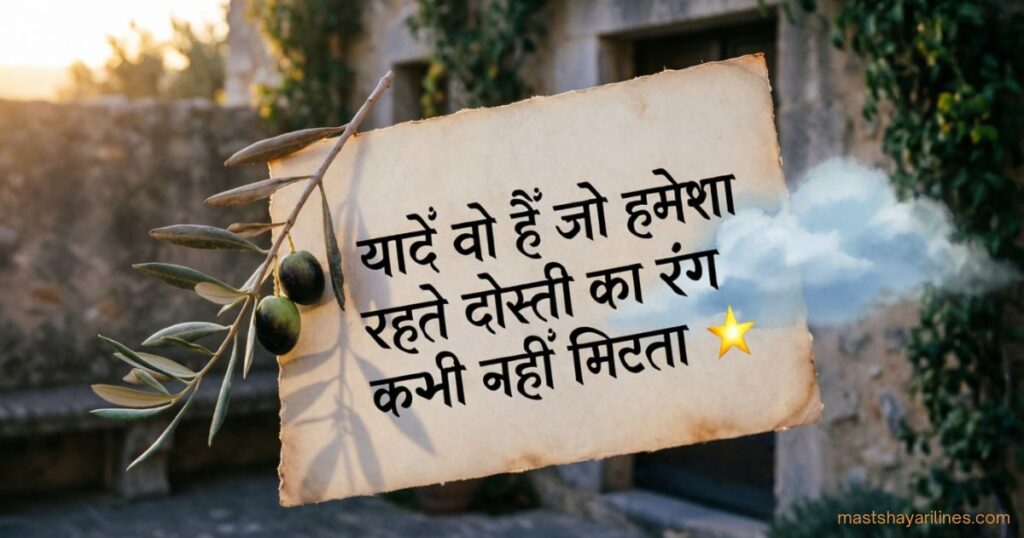 यादें वो हैं जो हमेशा
रहते दोस्ती का रंग
कभी नहीं मिटता ⭐
mastshayarilines.com